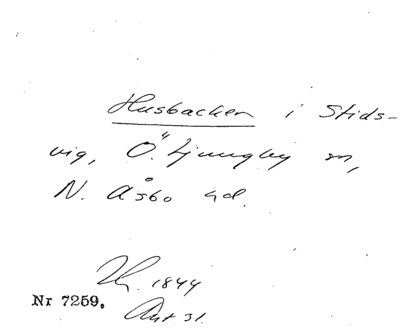 Husbacken i Stids-
vig, Ö. Ljungby sn,
N. Åsbo hd.
1844
Nr 7259.
Ant 31.